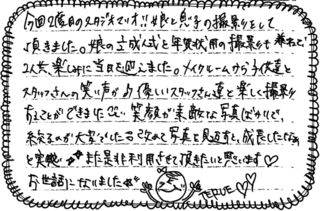 今回2度目のスタジオマリオ!!娘と息子の撮影をして
頂きました。娘の1/2成人式と年賀状用の撮影も兼ねて
2人共楽しみに当日を迎えました。メイクルームから子供達と
スタッフさんの笑い声が♪優しいスタッフさん達と楽しく撮影を
することができました♡笑顔が素敵な写真ばかりで、
選ぶのが大変でした。改めて写真を見返すと、成長したなぁ
と実感 また是非利用させて頂きたいと思います♡
お世話になりました